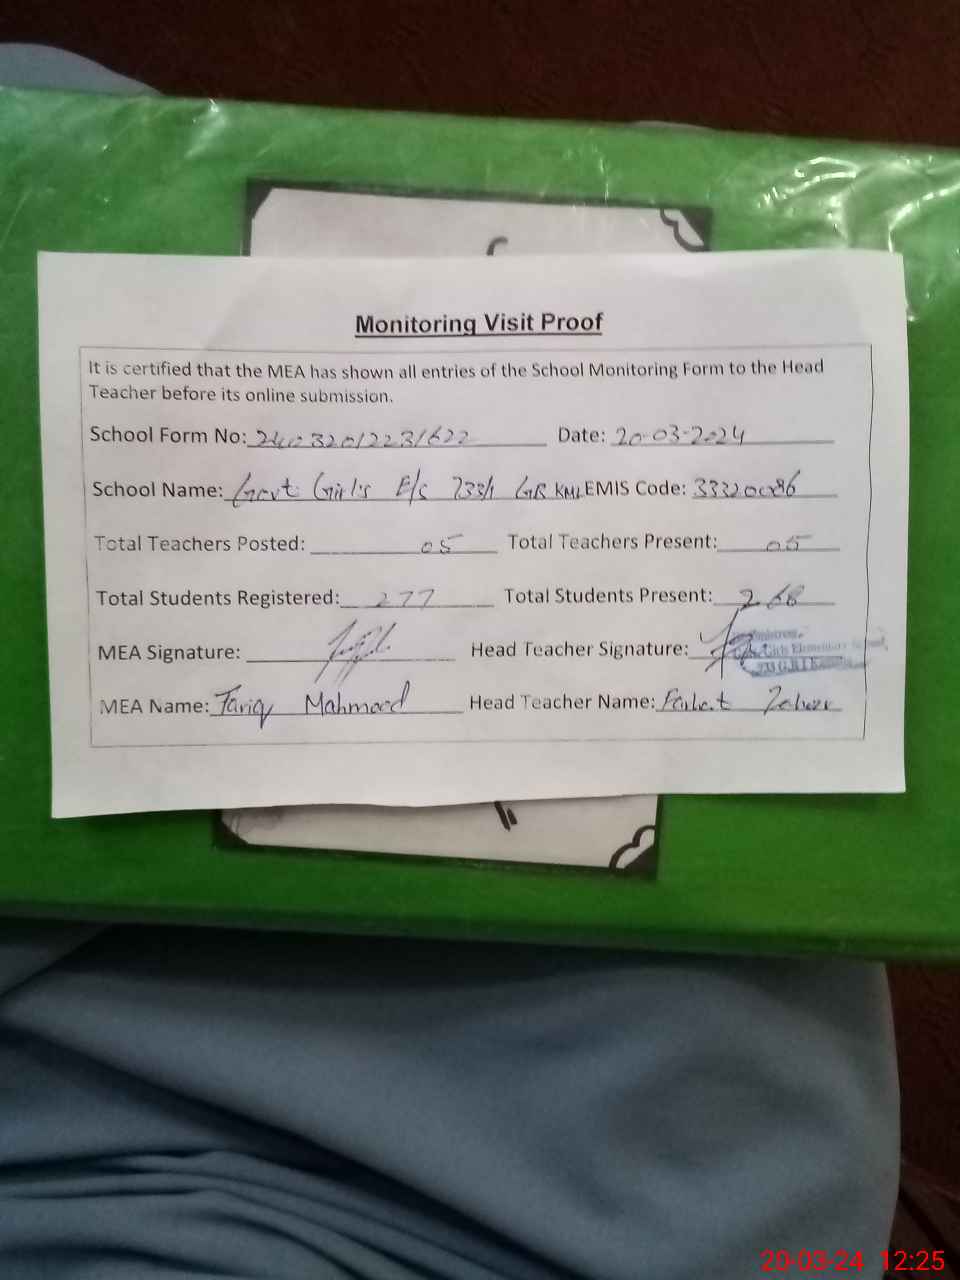 Monitoring Visit Proof
It is certified that the MEA has shown all entries of the School Monitoring Form to the Head
Teacher before its online submission.
School Form No: Date: 20-03-2024
School Name: Govt Girl's E/S 733/1 GB KML EMIS Code: 33320086
Total Teachers Posted: 05 Total Teachers Present: 05
Total Students Registered: 277 Total Students Present: 268
MEA Signature: Head Teacher Signature:
MEA Name: Tariq Mahmood Head Teacher Name: Farhat
20-03-24 12:25